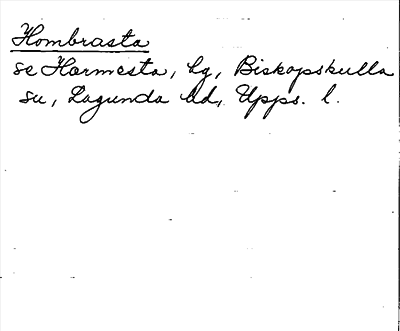 Hombrasta
se Harmesta, hg, Biskopskulla
su, Lagunda hd, Upps. l.